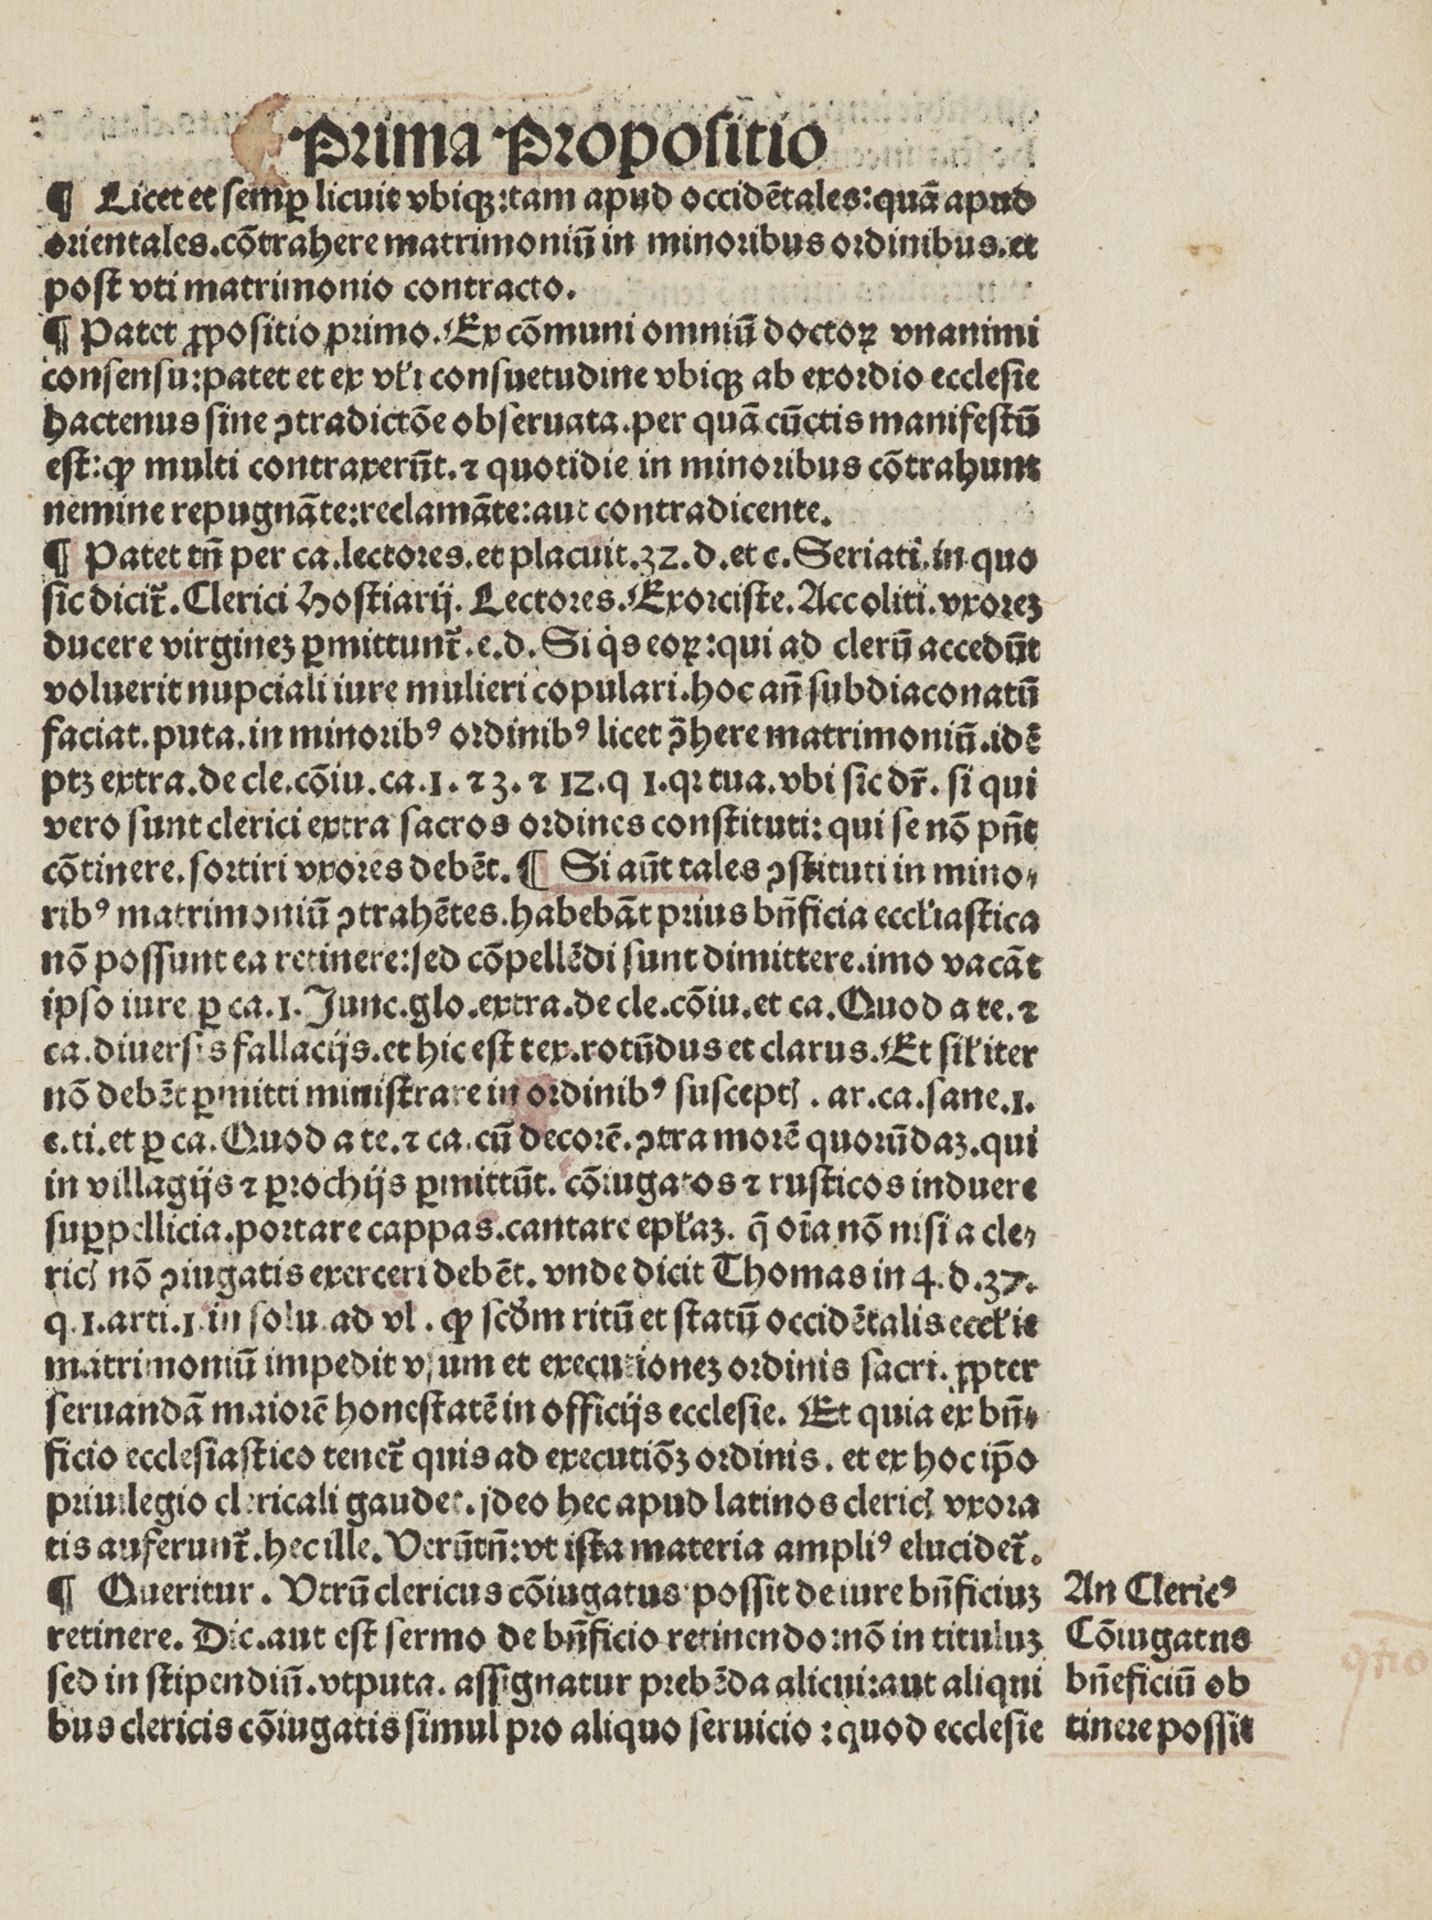 Prima Propositio
¶ Licet et semꝑ licuit vbiqꝫ:tam apud occidētales:quā apud
orientales.cōtrahere matrimoniū in minoribus ordinibus.et
post vti matrimonio contracto.
¶ Patet ꝓpositio primo. Ex cōmuni omniū doctoꝝ vnanimi
consensu:patet et ex vłi consuetudine vbiqꝫ ab exordio ecclesie
hactenus sine ꝯtradictōe obseruata.per quā cūctis manifestū
est:ꝙ multi contraxerūt.⁊ quotidie in minoribus cōtrahunt
nemine repugnāte:reclamāte:aut contradicente.
¶ Patet tñ per ca.lectores.et placuit.32.d.et c.Seriati.in quo
sic dicit̃.Clerici hostiarij.Lectores.Exorciste.Accoliti.vxoreꝫ
ducere virgineꝫ ꝑmittunt̃.e.d.Si q̇s eoꝝ:qui ad clerū accedūt
voluerit nupciali iure mulieri copulari.hoc añ subdiaconatū
faciat.puta.in minoribꝰ ordinibꝰ licet ꝯ̄here matrimoniū.idē
ptꝫ extra.de cle.cōiu.ca.1.⁊ 3.⁊ 12.q 1.qꝛ tua.vbi sic dr̃. si qui
vero sunt clerici extra sacros ordines constituti: qui se nō pn̄t
cōtinere.sortiri vxores debēt.¶ Si aūt tales ꝯstituti in mino⸗
ribꝰ matrimoniū ꝯtrahētes.habebāt prius bn̄ficia eccłiastica
nō possunt ea retinere:sed cōpellēdi sunt dimittere.imo vacāt
ipso iure ꝑ ca.1. Junc.glo.extra.de cle.cōiu.et ca.Quod a te.⁊
ca.diuersis fallacijs.et hic est tex.rotūdus et clarus.Et siłiter
nō debēt ꝑmitti ministrare in ordinibꝰ susceptꝭ. ar.ca.sane.1.
e.ti.et ꝑ ca.Quod a te.⁊ ca.cū decorē.ꝯtra morē quorūdaꝫ.qui
in villagijs ⁊ ꝑrochijs ꝑmittūt. cōiugatos ⁊ rusticos induere
suꝑpellicia.portare cappas.cantare epłaꝫ. q̄ oīa nō nisi a cle⸗
ricꝭ nō ꝯiugatis exerceri debēt. vnde dicit Thomas in 4.d.37.
q.1.arti.1.in solu.ad vl. ꝙ scd̄m ritū et statū occidētalis eccłie
matrimoniū impedit vsum et executioneꝫ ordinis sacri.ꝓpter
seruandā maiorē honestatē in officijs ecclesie. Et quia ex bn̄⸗
ficio ecclesiastico tenet̃ quis ad executiōꝫ ordinis. et ex hoc ip̄o
priuilegio clericali gaudet.ideo hec apud latinos clericꝭ vxora
tis auferunt̃.hec ille.Verūtn̄:vt ista materia ampliꝰ elucidet̃.
¶ Queritur. Vtrū clericus cōiugatus possit de iure bn̄ficiuꝫ
retinere. Dic.aut est sermo de bn̄ficio retinendo:nō in tituluꝫ
sed in stipendiū.vtputa. assignatur prebēda alicui:aut aliqui
bus clericis cōiugatis simul pro aliquo seruicio:quod ecclesie
An Clericꝰ
Cōiugatus
bn̄eficiū ob
tinere possit